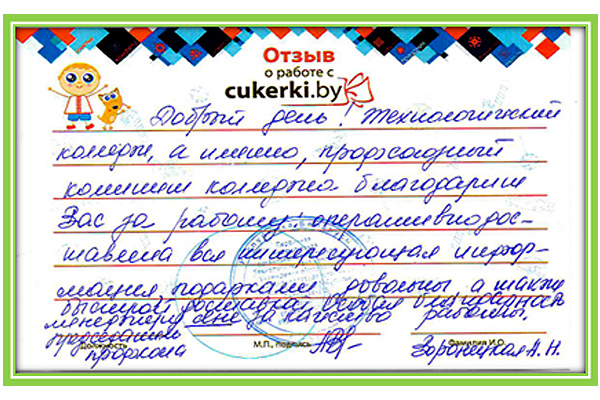 Отзыв
о работе с
cukerki.by
Добрый день! Технологический
колледж, а именно, профсоюзный
комитет колледжа благодарит
Вас за работу: оперативно дос-
тавлена вся интересующая инфор-
мация, подарками довольны, а также
быстрой доставкой. Особая благодарность
менеджеру за качество работы.
председатель
профкома
Должность
М.П., подпись
Фамилия И.О.
Воронецкая А. Н.